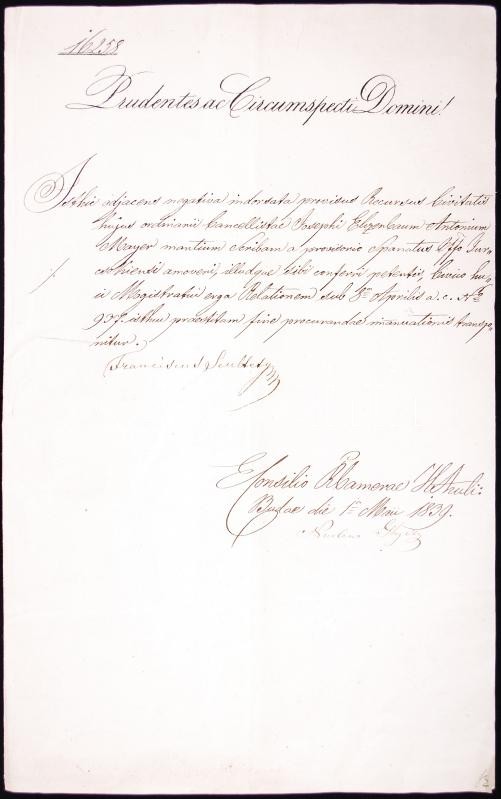 16258
Prudentes ac Circumspecti Domini!
Isthic adjacens negativa indorsata provisus Recursus Civitatis
hujus ordinarii Cancellistae Josephi Elizenbaum Antonium
Mayer mantium Scribam a provisorio
amoveri, illudque sibi conferri petentis, Civico hu„
ic Magistratui erga Relationem sub 5ª Aprilis a. c. Nro
937. isthuc praestitam fine procurandae inanuationis transpo„
nitur.
Franciscus Scultety
E Consilio R Camerae H. Auli:
Budae die 1ª Maii 1839.